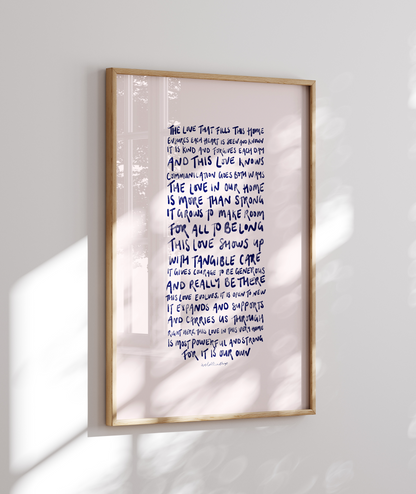 THE LOVE THAT FILLS THIS HOME
ENSURES EACH HEART IS SEEN AND KNOWN
IT IS KIND AND FORGIVES EACH DAY
AND THIS LOVE KNOWS
COMMUNICATION GOES BOTH WAYS
THE LOVE IN OUR HOME
IS MORE THAN STRONG
IT GROWS TO MAKE ROOM
FOR ALL TO BELONG
THIS LOVE SHOWS UP
WITH TANGIBLE CARE
IT GIVES COURAGE TO BE GENEROUS
AND REALLY BE THERE
THIS LOVE EVOLVES, IT IS OPEN TO NEW
IT EXPANDS AND SUPPORTS
AND CARRIES US THROUGH
RIGHT HERE, THIS LOVE IN THIS VERY HOME
IS MOST POWERFUL AND STRONG
FOR IT IS OUR OWN